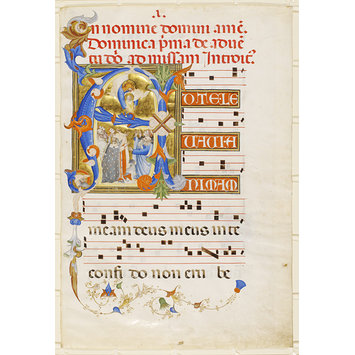 .I.
In nomine domini amē.
Dominica p̄ma de adue
tu dō ad missam Introit̄.
AD TE LE
VAVI A
NIMAM
meam deus meus in te
confi do non eru be